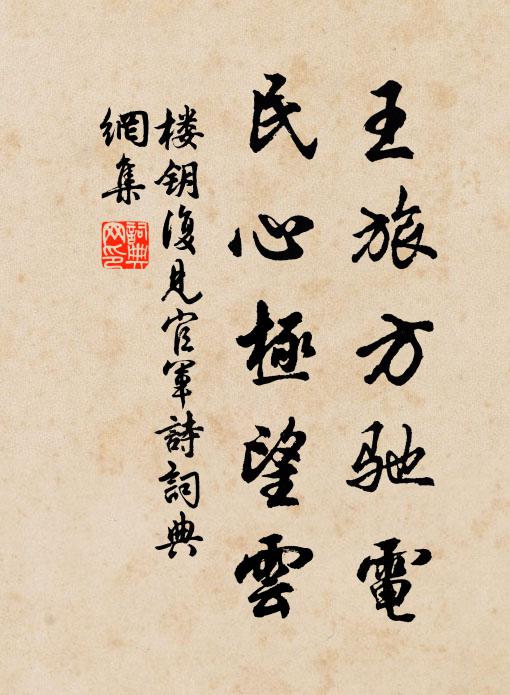 王旅方驰電
民心極望雲
楼钥復見官軍詩詞典
網集
詞典
网印